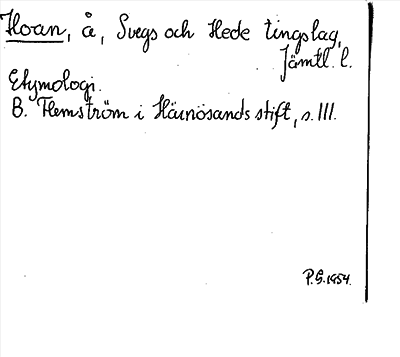 Hoan, å, Svegs och Hede tingslag,
Jämtl. l.
Etymologi.
B. Flemström i Härnösands stift, s. III.
P.G. 1954.